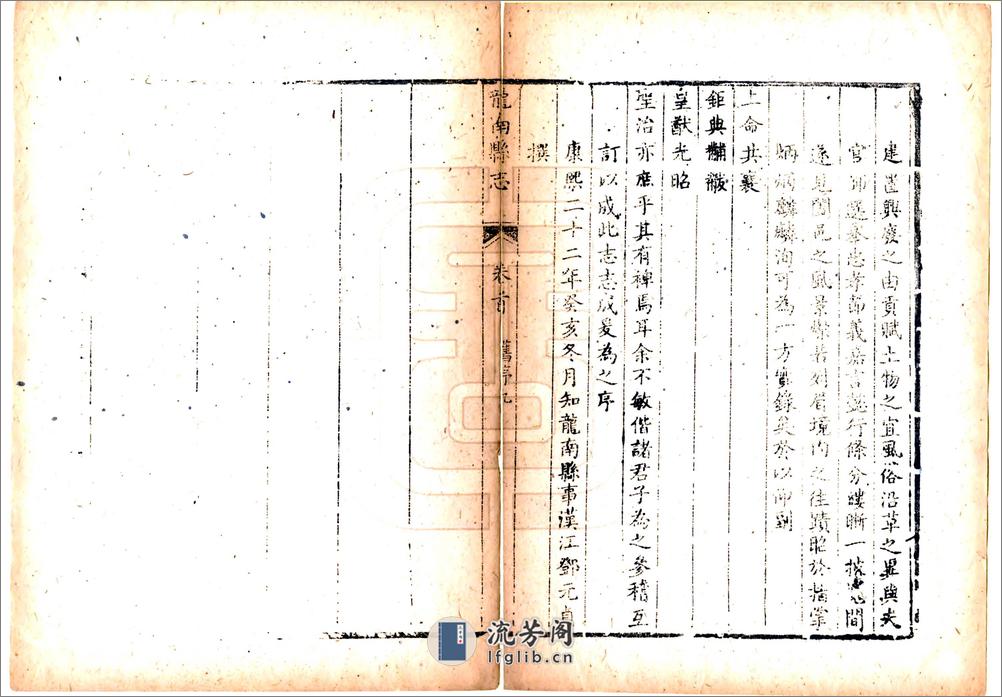 建置興廢之由貢賦土物之宜風俗沿革之異與夫
官師選舉忠孝節義嘉言懿行條分縷晰一披閱間
遂見闔邑之風景燦若列眉境內之往蹟昭於指掌
炳炳麟麟洵可為一方實錄矣於以仰副
上命共襄
鉅典黼黻
皇猷光昭
聖治亦庶乎其有裨焉耳余不敏偕諸君子為之參稽互
訂以成此志志成爰為之序
康熙二十二年癸亥冬月知龍南縣事漢江鄧元貞
撰
龍南縣志 卷首 舊序九
流芳阁
lfglib.cn